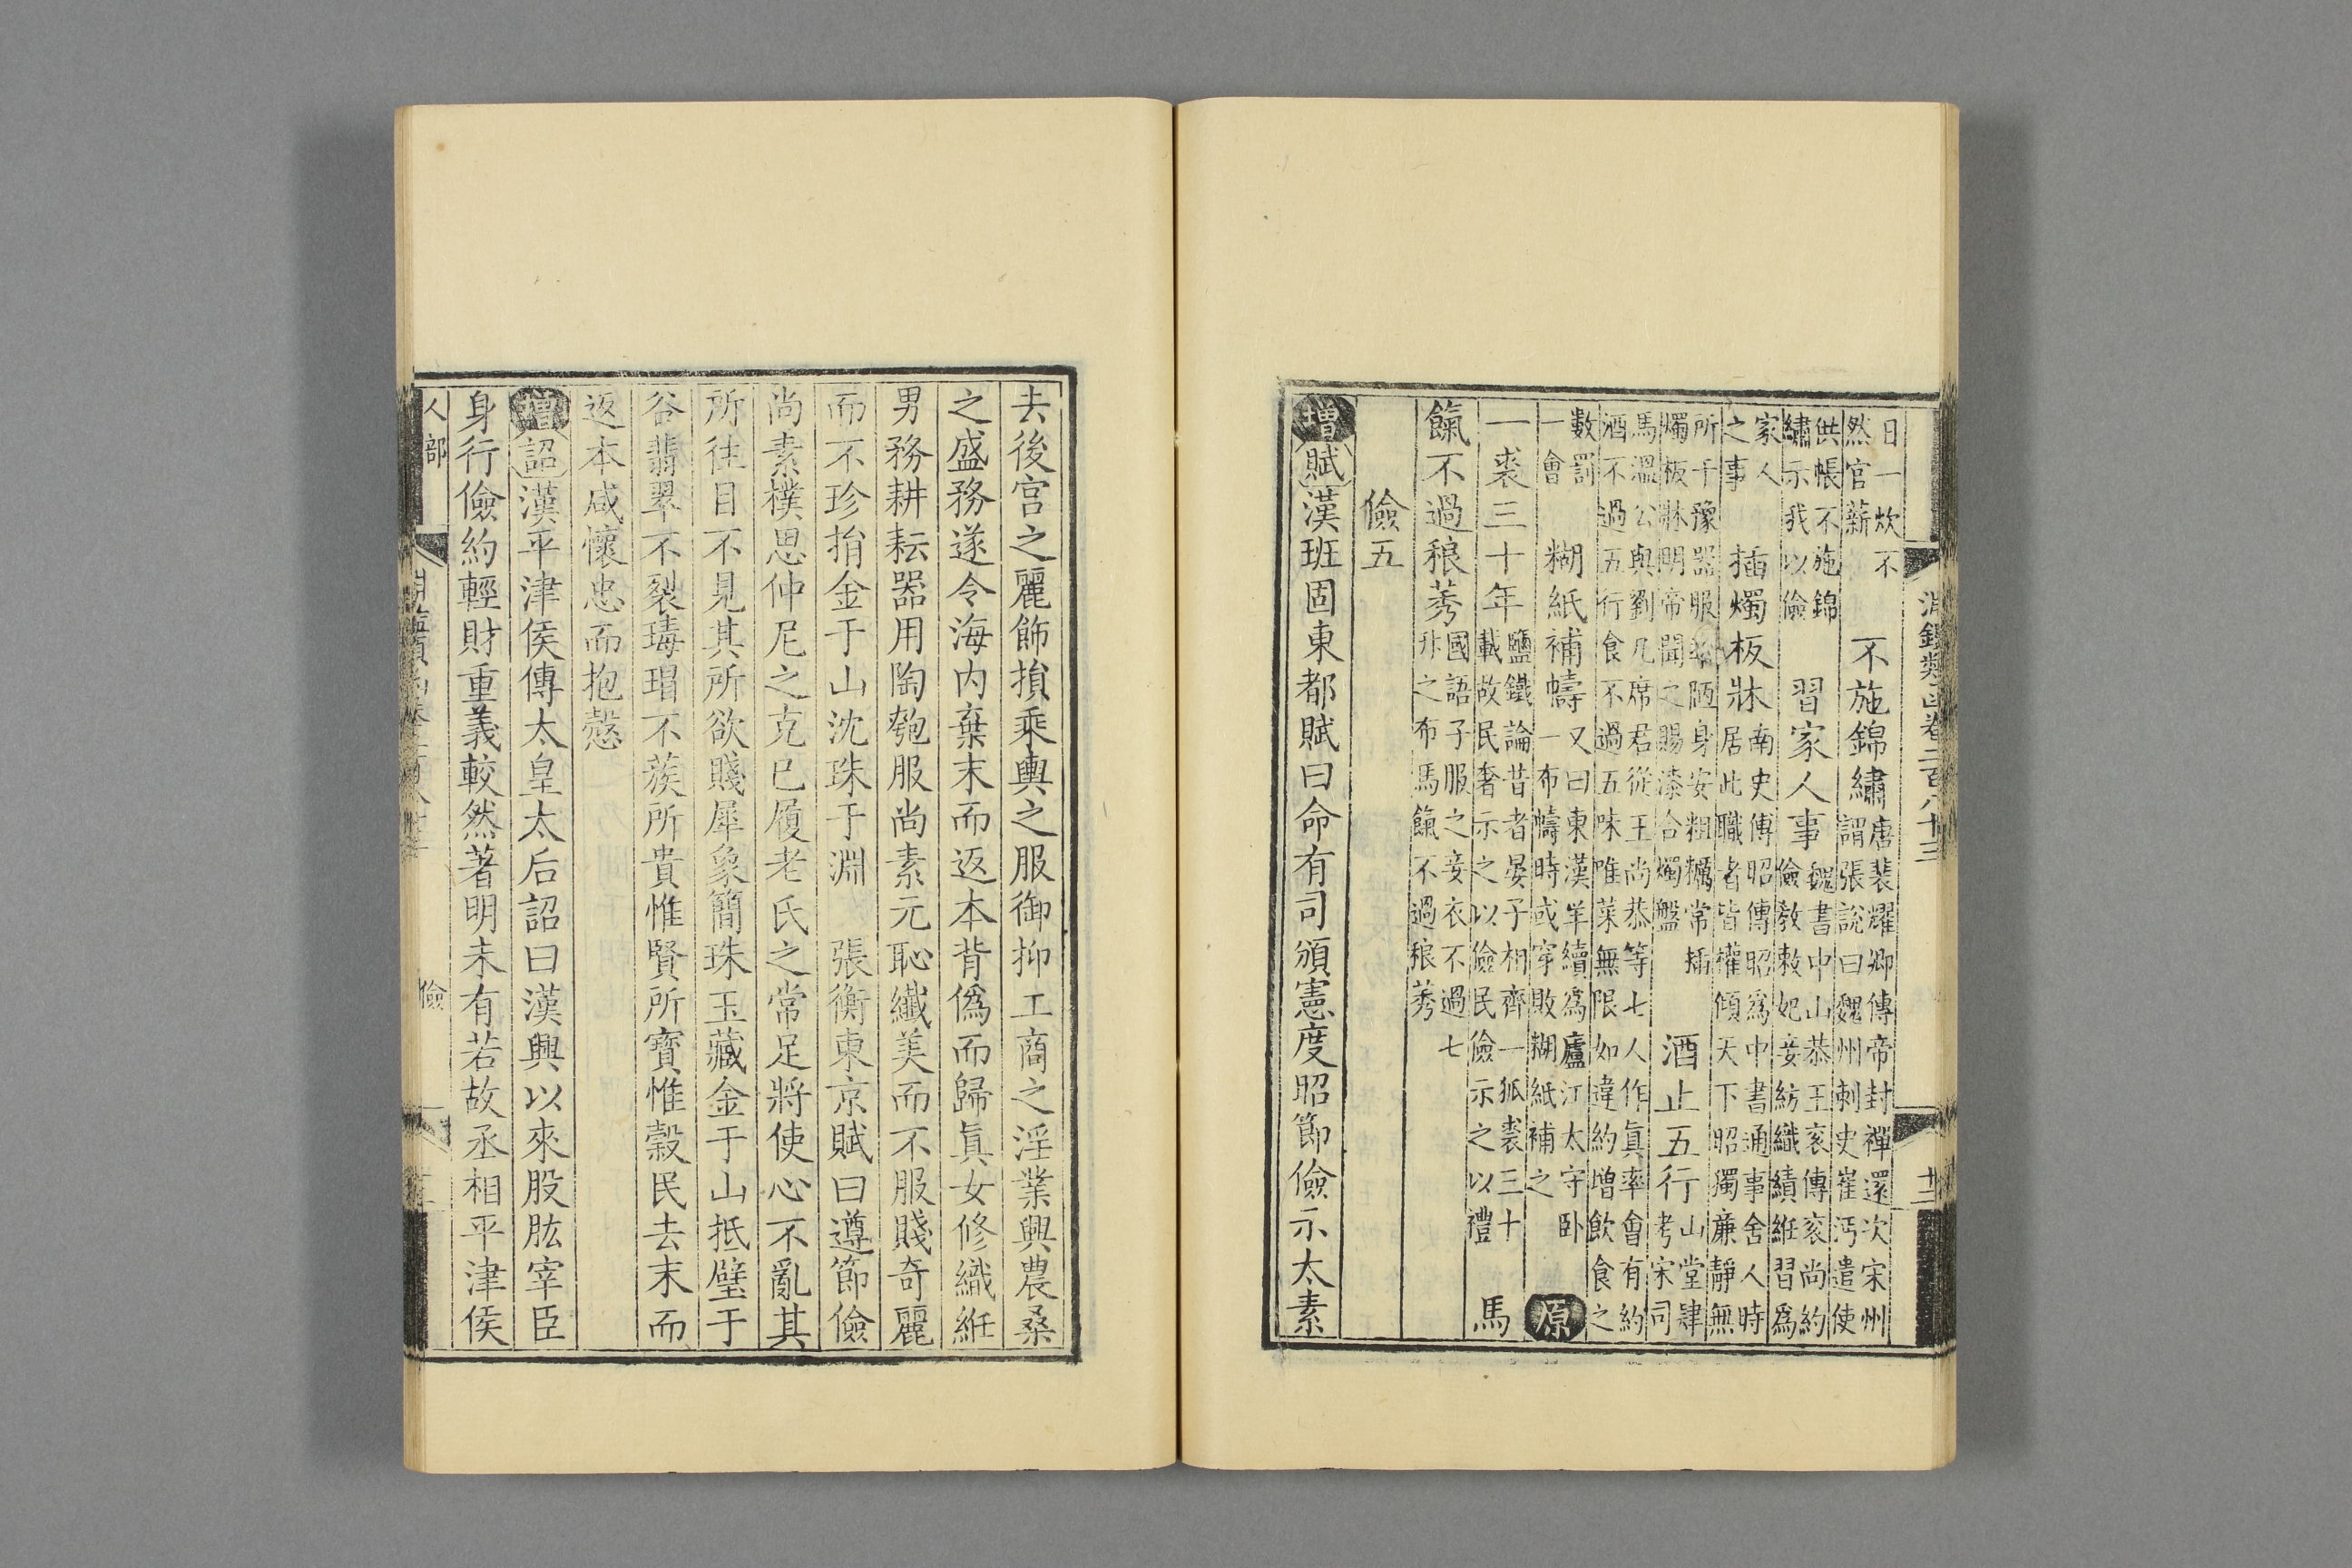 淵鑑類函卷二百八十三 十二
日一炊不
然官薪
不施錦繡
唐裴耀卿傳帝封禪還次宋州
謂張說曰魏州刺史崔沔遣使
供帳不施錦
繡示我以儉
習家人事
魏書中山恭王衮傳衮尚約
儉敎敕妃妾紡織績絍習爲
家人
之事
插燭板牀
南史傳昭傳昭爲中書通事舍人時
居此職者皆權傾天下昭獨廉靜無
所干豫器服陋身安粗糲常插
燭板牀明帝聞之賜漆合燭盤
酒止五行
山堂肆
考宋司
馬溫公與劉凡席君從王尚恭等七人作眞率會有約
酒不過五行食不過五味唯菜無限如違約增飲食之
數罰
一會
糊紙補幬
又曰東漢羊續爲廬江太守卧
一布幬時或穿敗糊紙補之
原
一裘三十年
鹽鐵論昔者晏子相齊一狐裘三十
載故民奢示之以儉民儉示之以禮
馬
餼不過稂莠
國語子服之妾衣不過七
升之布馬餼不過稂莠
儉五
增賦漢班固東都賦曰命有司頒憲度昭節儉示太素
去後宮之麗飾損乘輿之服御抑工商之淫業興農桑
之盛務遂令海内棄末而返本背僞而歸眞女修織絍
男務耕耘器用陶匏服尚素元恥纖美而不服賤奇麗
而不珍捐金于山沈珠于淵 張衡東京賦曰遵節儉
尚素樸思仲尼之克己履老氏之常足將使心不亂其
所往目不見其所欲賤犀象簡珠玉藏金于山抵璧于
谷翡翠不裂瑇瑁不蔟所貴惟賢所寶惟穀民去末而
返本咸懷忠而抱慤
增詔漢平津侯傳太皇太后詔曰漢興以來股肱宰臣
身行儉約輕財重義較然著明未有若故丞相平津侯
人部 儉